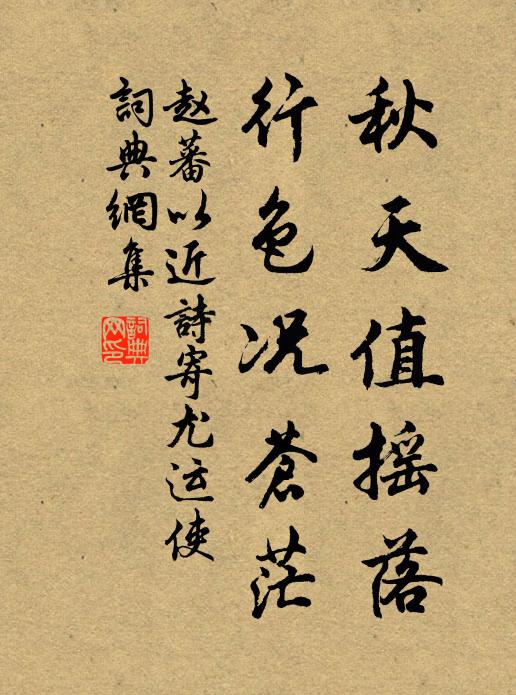 秋天值摇落
行色况蒼茫
赵蕃以近詩寄尤运使
詞典網集
詞典網印